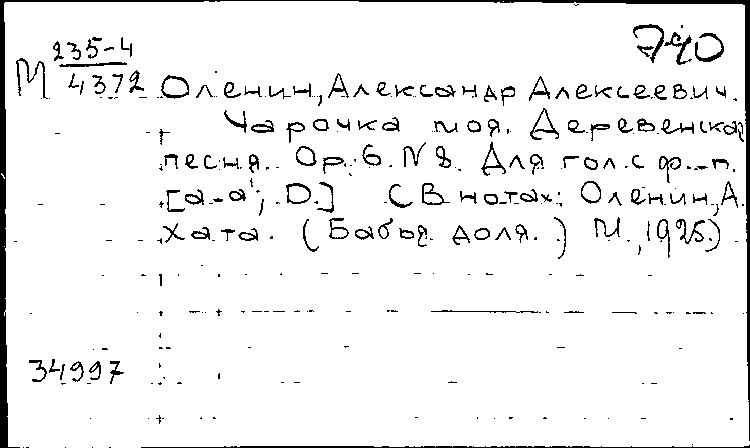 740
М 235-4
4372
Оленин, Александр Алексеевич.
Чарочка моя. Деревенская
песня. Op. 6. N 8. Для гол. с ф.-п.
[a-a'; D.] (В нотах: Оленин, А.
Хата. (Бабья доля.) М., 1925.)
34997